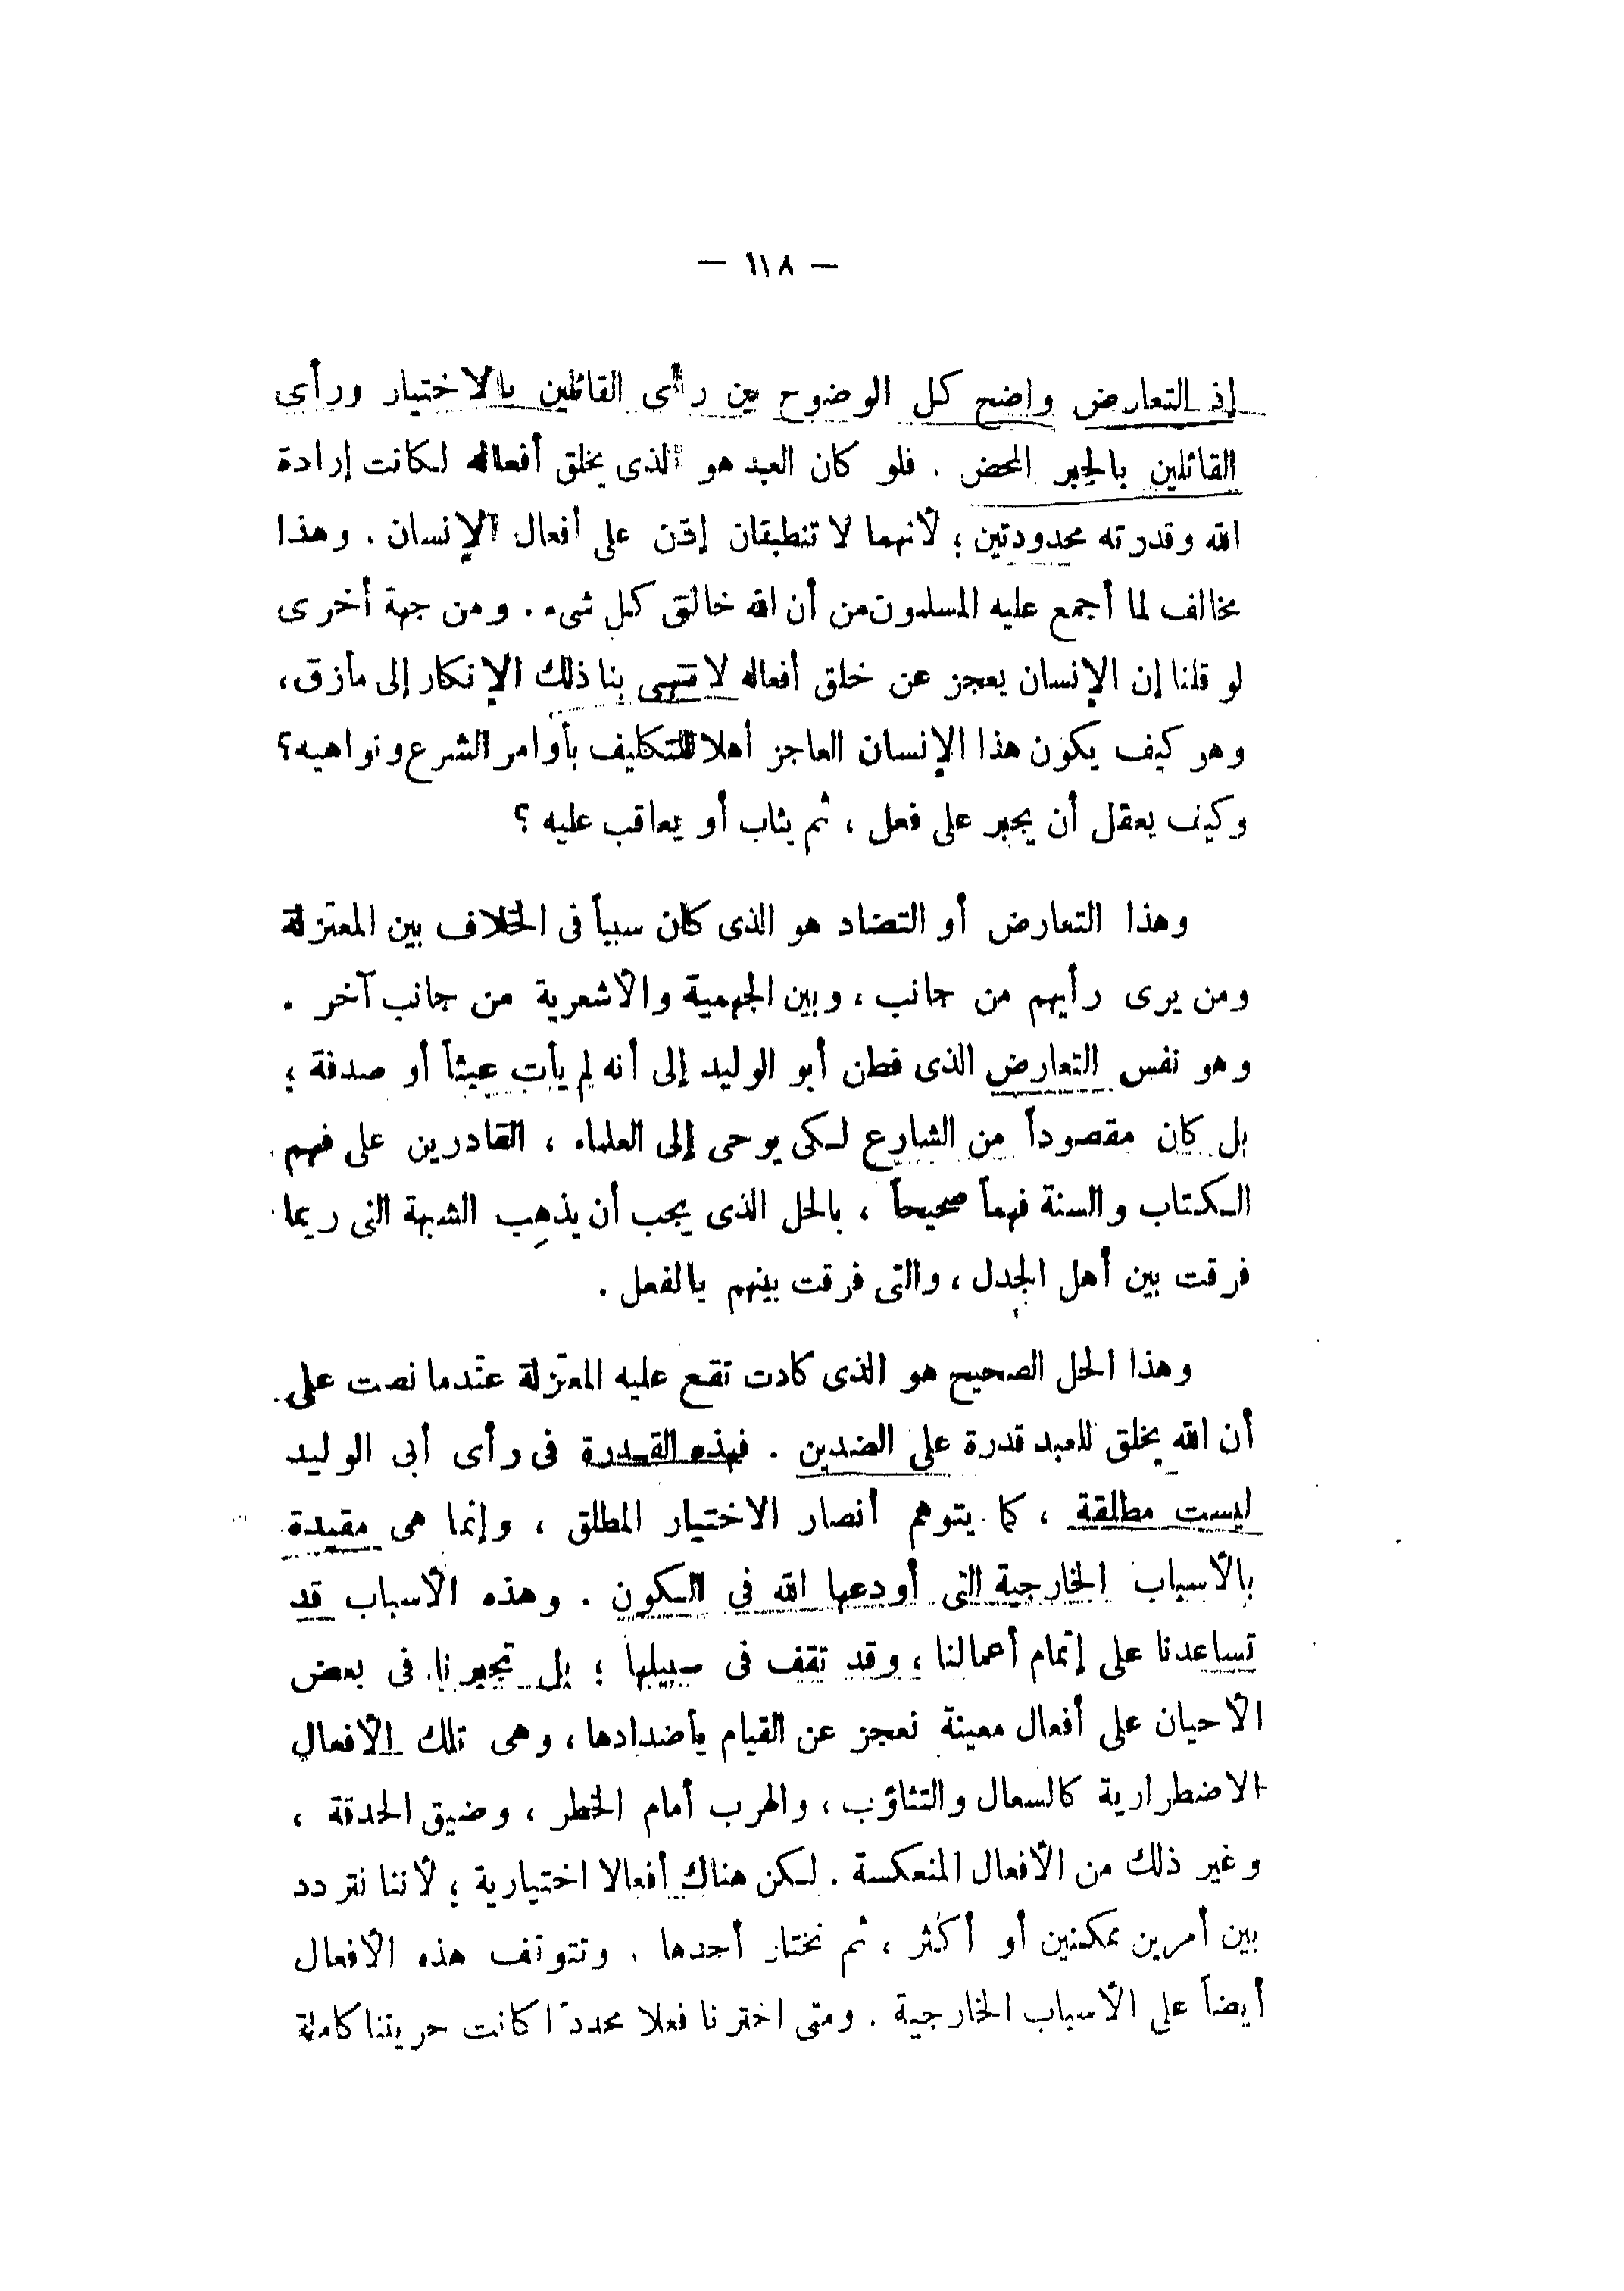 — ١١٨ —
إذ التعارض واضح كل الوضوح بين رأى القائلين بالاختيار ورأى
القائلين بالجبر المحض . فلو كان العبد هو الذى يخلق أفعاله لكانت إرادة
الله وقدرته محدودتين ؛ لأنهما لا تنطبقان إذن على أفعال الإنسان . وهذا
مخالف لما أجمع عليه المسلمون من أن الله خالق كل شىء . ومن جهة أخرى
لو قلنا إن الإنسان يعجز عن خلق أفعاله لا تنتهى بنا ذلك الإنكار إلى مأزق،
وهو كيف يكون هذا الإنسان العاجز أهلا للتكليف بأوامر الشرع ونواهيه؟
وكيف يعقل أن يجبر على فعل ، ثم يثاب أو يعاقب عليه ؟
وهذا التعارض أو التضاد هو الذى كان سبباً فى الخلاف بين المعتزلة
ومن يرى رأيهم من جانب ، وبين الجهمية والأشعرية من جانب آخر .
وهو نفس التعارض الذى فطن أبو الوليد إلى أنه لم يأت عبثاً أو صدفة ؛
بل كان مقصوداً من الشارع لكى يوحى إلى العلماء ، القادرين على فهم
الكتاب والسنة فهماً صحيحاً ، بالحل الذى يجب أن يذهب الشبهة التى ربما
فرقت بين أهل الجدل ، والتى فرقت بينهم بالفعل .
وهذا الحل الصحيح هو الذى كادت تقع عليه المعتزلة عندما نصت على
أن الله يخلق للعبد قدرة على الضدين . فهذه القدرة فى رأى أبى الوليد
ليست مطلقة ، كما يتوهم أنصار الاختيار المطلق ، وإنما هى مقيدة
بالأسباب الخارجية التى أودعها الله فى الكون . وهذه الأسباب قد
تساعدنا على إتمام أعمالنا ، وقد تقف فى سبيلها ؛ بل تجبرنا فى بعض
الأحيان على أفعال معينة نعجز عن القيام بأضدادها ، وهى تلك الأفعال
الاضطرارية كالسعال والتثاؤب ، والهرب أمام الخطر ، وضيق الحدقة ،
وغير ذلك من الأفعال المنعكسة . لكن هناك أفعالا اختيارية ؛ لأننا نتردد
بين أمرين ممكنين أو أكثر ، ثم نختار أحدها . وتتوقف هذه الأفعال
أيضاً على الأسباب الخارجية . ومتى اخترنا فعلا محدداً كانت حريتنا كاملة